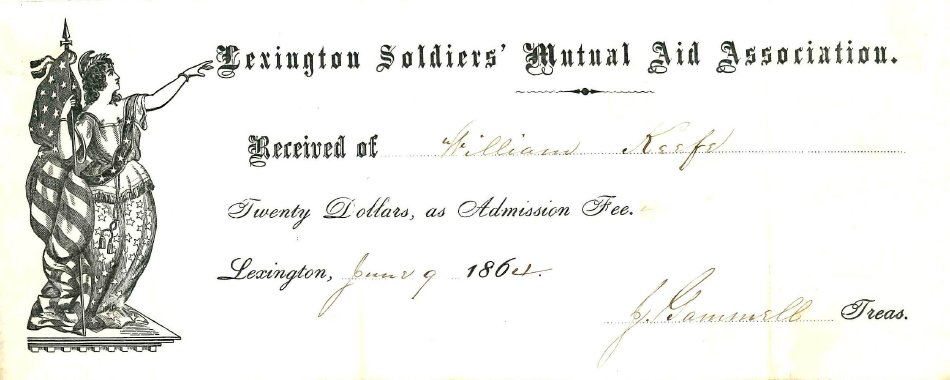 Lexington Soldiers' Mutual Aid Association.
Received of William Keefe
Twenty Dollars, as Admission Fee.
Lexington, June 9 1864.
J. Gammell Treas.